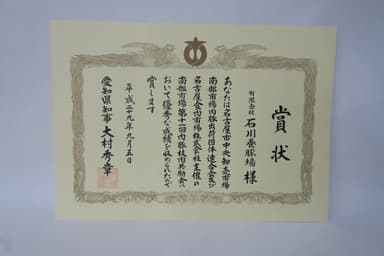 賞状
有限会社 石川養豚場 様
あなたは名古屋市中央卸売市場
南部市場肉豚出荷団体連合会及び
名古屋食肉市場株式会社主催の
南部市場第十一回肉豚枝肉共励会に
おいて優秀な成績を収められたので
賞します
平成二十九年九月十五日
愛知県知事 大村秀章